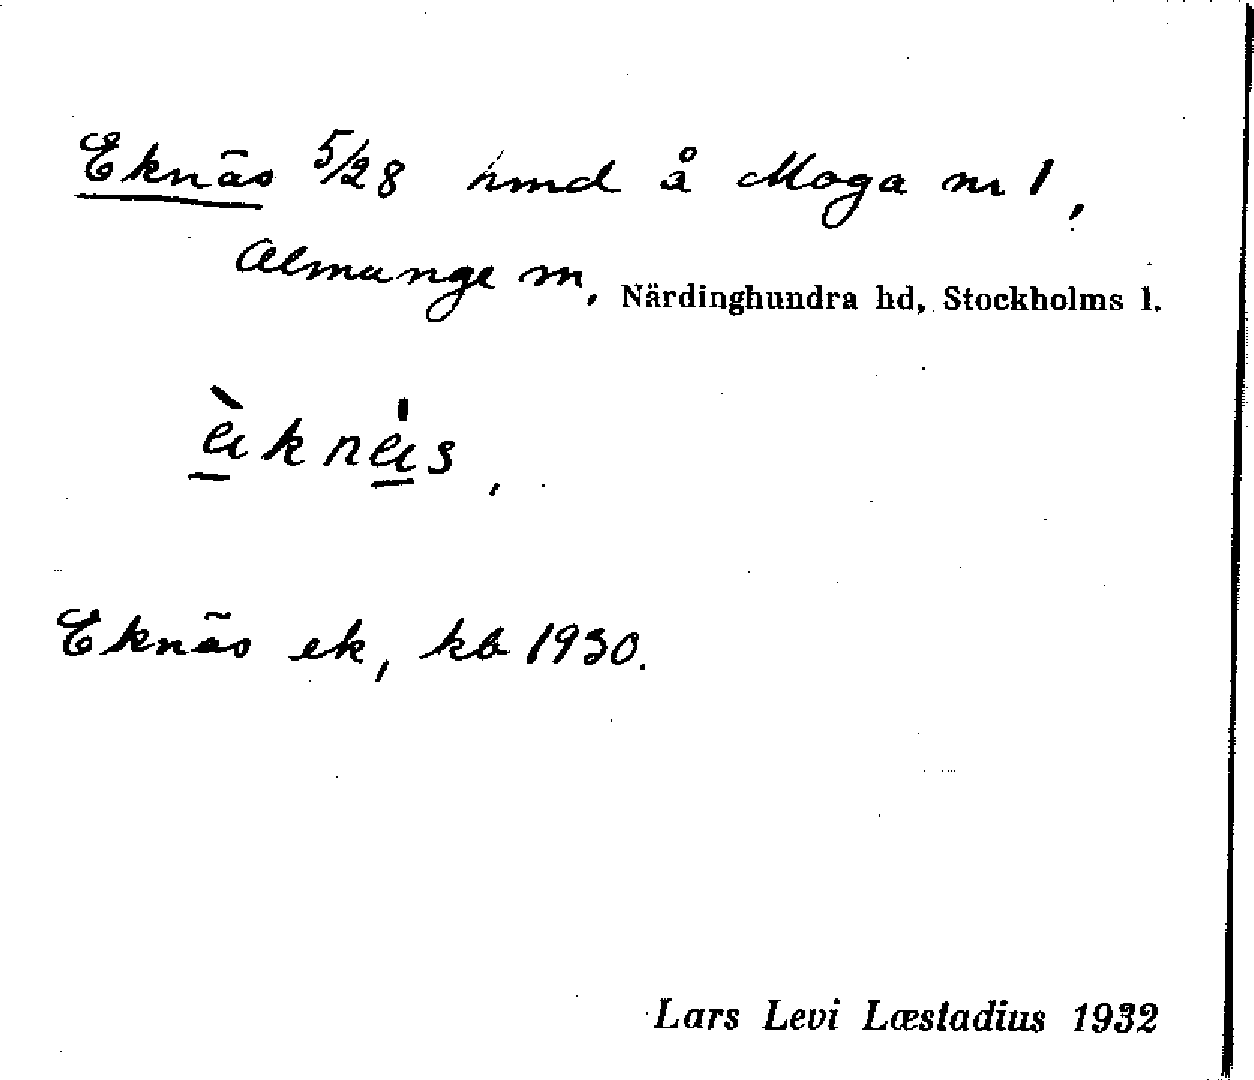 Eknäs 5/28 hmd å Moga nr 1,
Almunge sn, Närdinghundra hd, Stockholms l.
ä̀knä́s,
Eknäs ek, kb 1930.
Lars Levi Læstadius 1932